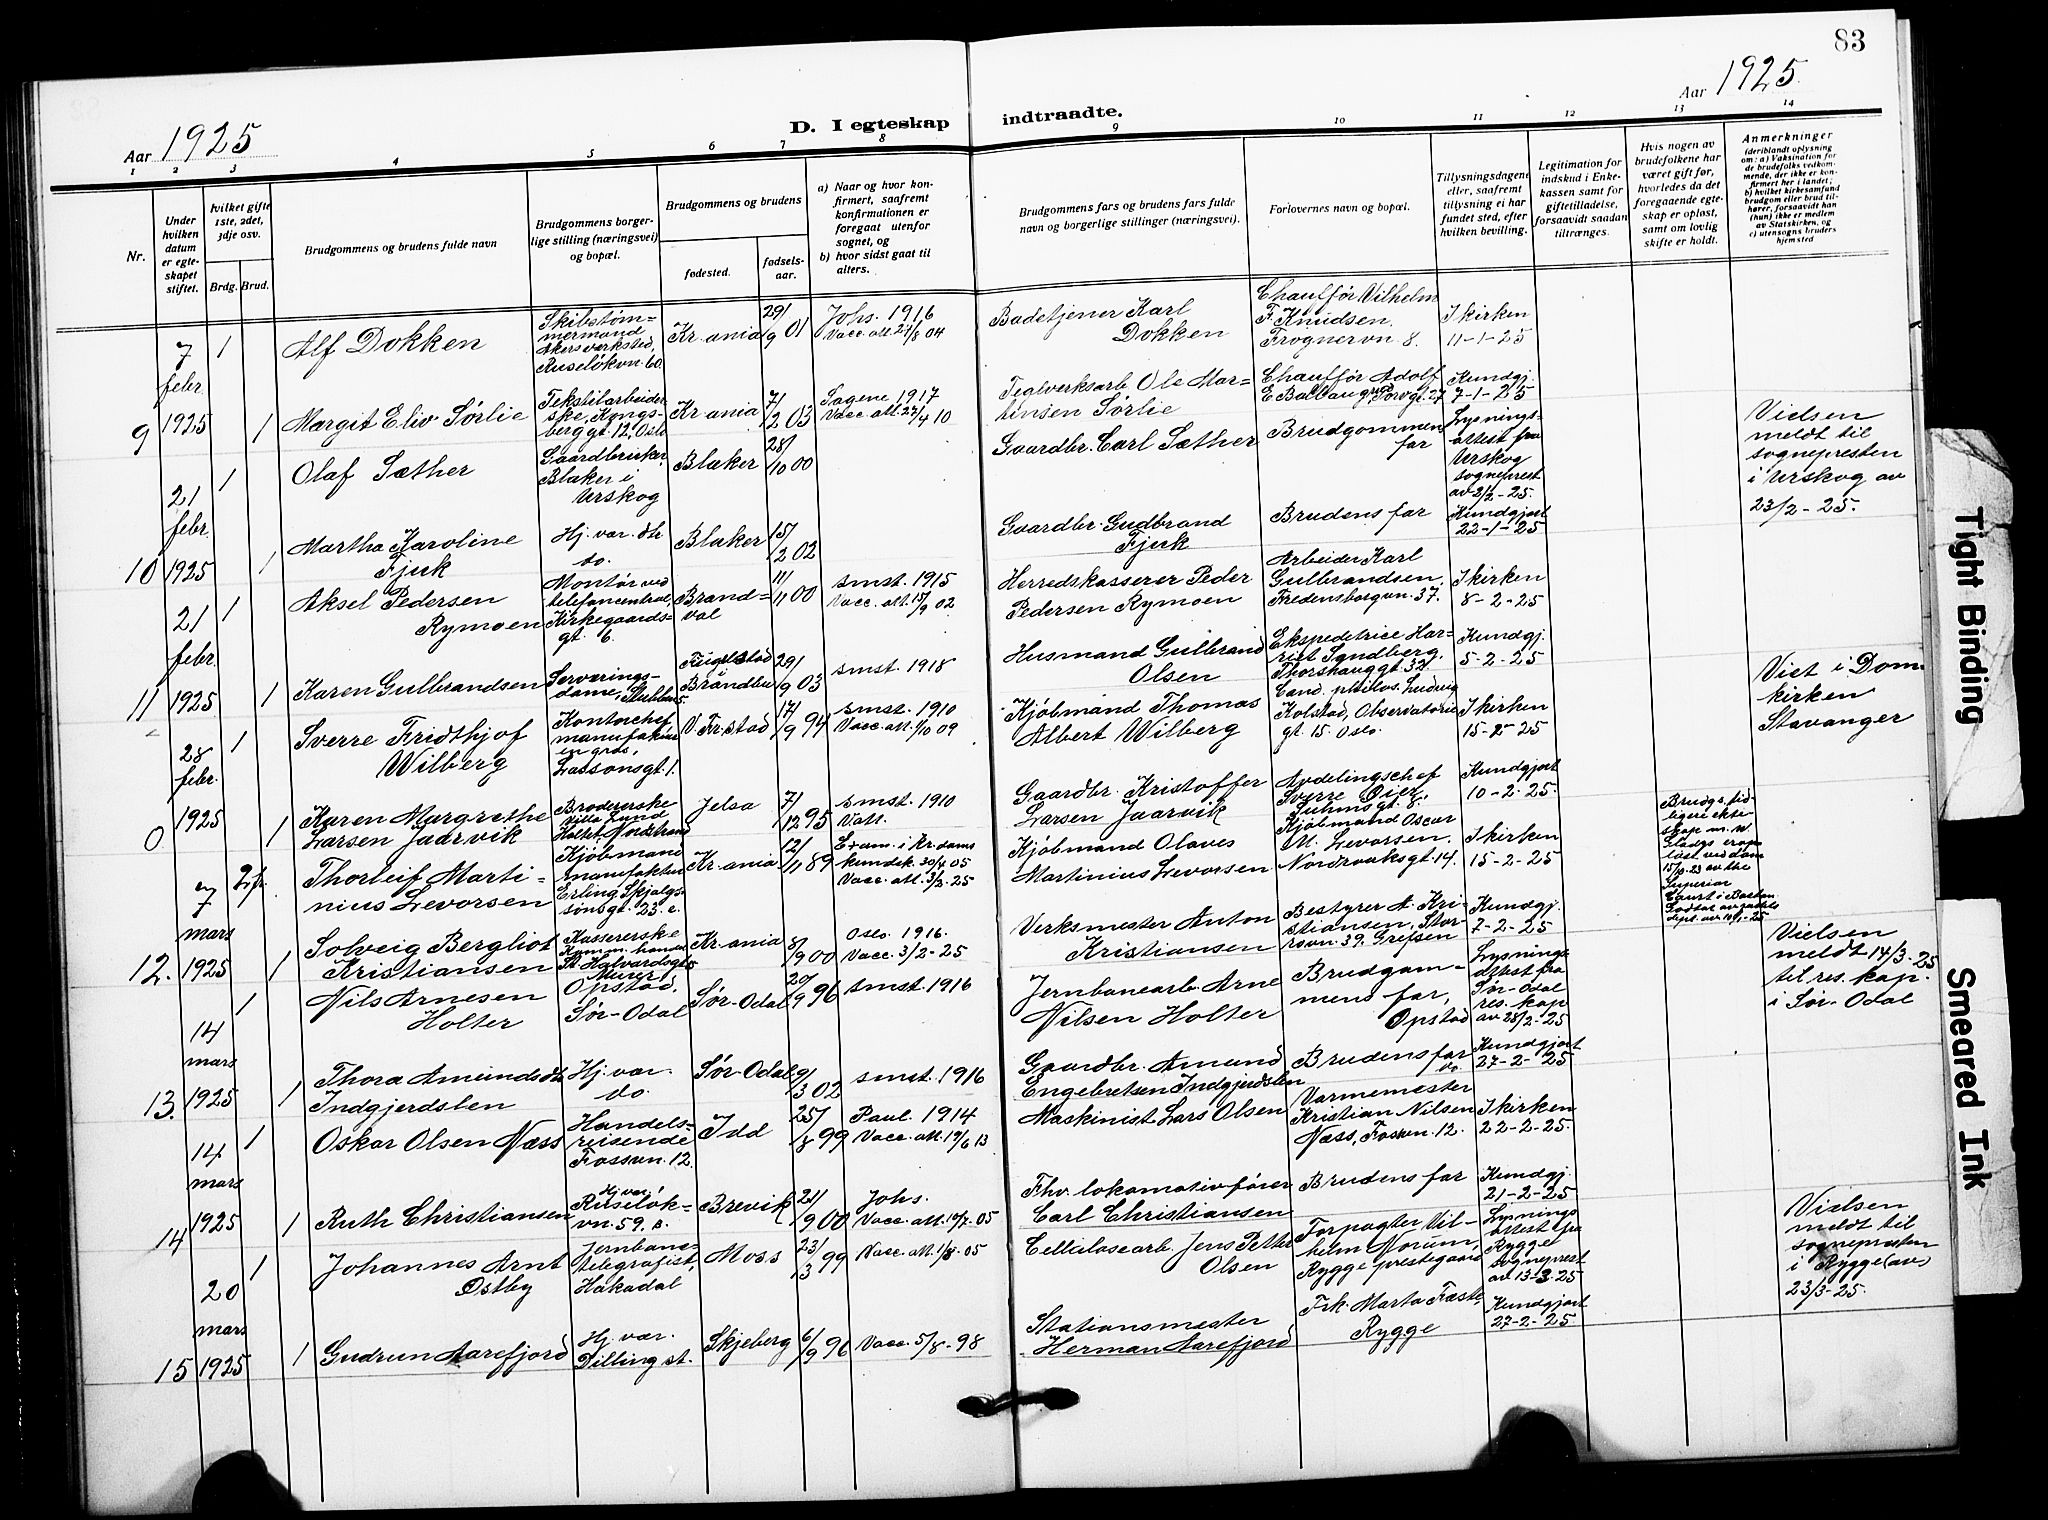 83
Aar 1925
D. I egteskap indtraadte.
Aar 1925.
1 2 3 4 5 6 7 8 9 10 11 12 13 14
Nr.
Under hvilken datum er egte-skapet stiftet.
Hvilket gifte 1ste, 2det, 3dje osv.
Brdg. Brud.
Brudgommens og brudens fulde navn
Brudgommens borger-lige stilling (næringsvei) og bopæl.
Brudgommens og brudens
fødested.
fødsels-aar.
a) Naar og hvor kon-firmert, saafremt konfirmationen er foregaat utenfor sognet, og
b) hvor sidst gaat til alters.
Brudgommens fars og brudens fars fulde navn og borgerlige stillinger (næringsvei).
Forlovernes navn og bopæl.
Tillysningsdagene eller, saafremt tillysning ei har fundet sted, efter hvilken bevilling.
Legitimation for indskud i Enke-kassen samt for giftetilladelse, forsaavidt saadan tiltrænges.
Hvis nogen av brudefolkene har været gift før, hvorledes da det foregaaende egte-skap er opløst, samt om lovlig skifte er holdt.
Anmerkninger
(deriblandt oplysning om: a) Vaksination for de brudefolks vedkom-mende, der ikke er kon-firmert her i landet; b) hvilket kirkesamfund brudgom eller brud til-hører, forsaavidt han (hun) ikke er medlem av Statskirken, og c) utensogns bruders hjemsted
9 7 febr. 1925
1 Alf Dokken
Skibstøm-mermand Akersverksted, Ruseløkvn. 60.
Kr.ania 29/9 01
Johs. 1916 Vacc. att. 27/8 04
Badetjener Karl Dokken
Chauffør Vilhelm F. Knudsen, Frognervn. 8.
I kirken 11-1-25
1 Margit Eliv Sørlie
Tekstilarbeider ske, Kongs-berg gt. 12, Oslo
Kr.ania 7/2 03
Sagene 1917 Vacc. att. 27/4 10
Teglverksarb. Ole Mar-tinsen Sørlie
Chauffør Adolf
Kundgj. 7-1-25
10 21 febr. 1925
1 Olaf Sæther
Gaardbruker, Blaker i Urskog
Blaker 28/10 00
Gaardbr. Carl Sæther
Brudgommens far
Lysnings-attest fra Urskog sogneprest av 2/2-25.
Vielsen meldt til sognepresten i Urskog av 23/2-25.
1 Martha Karoline Fjuk
Hj. vær. dtr do.
Blaker 15/2 02
Gaardbr. Gudbrand Fjuk
Brudens far
Kundgjort 22-1-25
11 21 febr. 1925
1 Aksel Pedersen Rymoen
Montør ved telefoncentral, Kirkegaards-gt. 6.
Brand-val 11/11 00
smst. 1915 Vacc. att. 15/9 02
Herredskasserer Peder Pedersen Rymoen
Arbeider Karl Gulbrandsen, Fredensborgvn. 37.
I kirken 8-2-25
1 Karen Gulbrandsen
Serverings-dame,
29/9 03
smst. 1918
Husmand Gulbrand Olsen
Ekspeditrice Har-riet Sandberg, Thorshauggt. 32
Kundgj. 5-2-25
0 28 febr. 1925
1 Sverre Fridthjof Wilberg
Kontorchef manufaktur en gros, Lassonsgt. 1.
V. Fr.stad 17/9 94
smst. 1910 Vacc. att. 1/10 09
Kjøbmand Thomas Albert Wilberg
Cand. philos. Ludvig Kolstad, Observatorie gt. 15. Oslo.
I kirken 15-2-25
Viet i Dom kirken Stavanger
1 Karen Margrethe Larsen Jaarvik
Brodererske Villa Lund Holtet, Nordstrand
Jelsa 7/12 95
smst. 1910 Vatt.
Gaardbr. Kristoffer Larsen Jaarvik
Avdelingschef Sverre Øier, Suhmsgt. 8.
Kundgjort 10-2-25.
12. 7 mars 1925
2. Thorleif Marti-nius Levorsen
Kjøbmand manufaktur Erling Skjalgs-sønsgt. 23. c.
Kr.ania 12/11 89
Exam. i Kr.doms kundsk. 30/4 05 Vacc. att. 3/2-25
Kjøbmand Olaves Martinius Levorsen
Kjøbmand Oscar M. Levorsen, Nordraaksgt. 14.
I kirken 15-2-25
1 Solveig Bergliot Kristiansen
Kassererske St. Halvardsgt.
Kr.ania 8/9 00
Oslo. 1916. Vacc. 3/2-25
Verksmester Anton Kristiansen
Bestyrer A. Kri-stiansen, Stor-rovn. 39, Grefsen
Kundgj. 7-2-25
13. 14 mars 1925
1 Nils Arnesen Holter
Murer, Opstad, Sør-Odal
Sør-Odal 20/9 96
smst. 1916
Jernbanearb. Arne Nilsen Holter
Brudgom-mens far, Opstad
Lysnings-attest fra Sør-Odal res. kap av 28/2-25
Vielsen meldt 14/3-25 til res. kap. i Sør-Odal
1 Thora Amundsdtr Indgjerdslen
Hj. vær. do.
Sør-Odal 9/3 02
smst. 1916
Gaardbr. Amund Engebretsen Indgjerdslen
Brudens far do.
Kundgjort 27-2-25
14 14 mars 1925
1 Oskar Olsen Næss
Handels-reisende Fossvn. 12.
Idd 25/8 99
Paul. 1914 Vacc. att. 19/6 13
Maskinist Lars Olsen
Varmemester Kristian Nilsen Næss, Fossvn. 12.
I kirken 22-2-25.
1 Ruth Christiansen
Hj. vær. Ruseløk-vn. 59. s.
Brevik 21/9 00
Johs. Vacc. att. 19/7-05
Fhv. lokomotivfører Carl Christiansen
Brudens far
Kundgj. 21-2-25
15 20 mars 1925
1 Johannes Arnt Østby
Jernbane-telegrafist, Hakadal
Moss 23/3 99
Vacc. att. 1/8-05
Cellulosearb. Jens Petter Olsen
Forpagter Vil-helm Norum, Rygge prestegaard
Lysnings attest fra Rygge sogneprest av 13-3-25
Vielsen meldt til sognepresten i Rygge (av) 23/3-25.
1 Gudrun Aarefjord
Hj. vær. Dilling st.
Skjeberg 6/9 96
Vacc. 5/8-98
Stationsmester Herman Aarefjord
Frk. Marta Fæste, Rygge
Kundgjort 27-2-25
Tight Binding
Smeared Ink